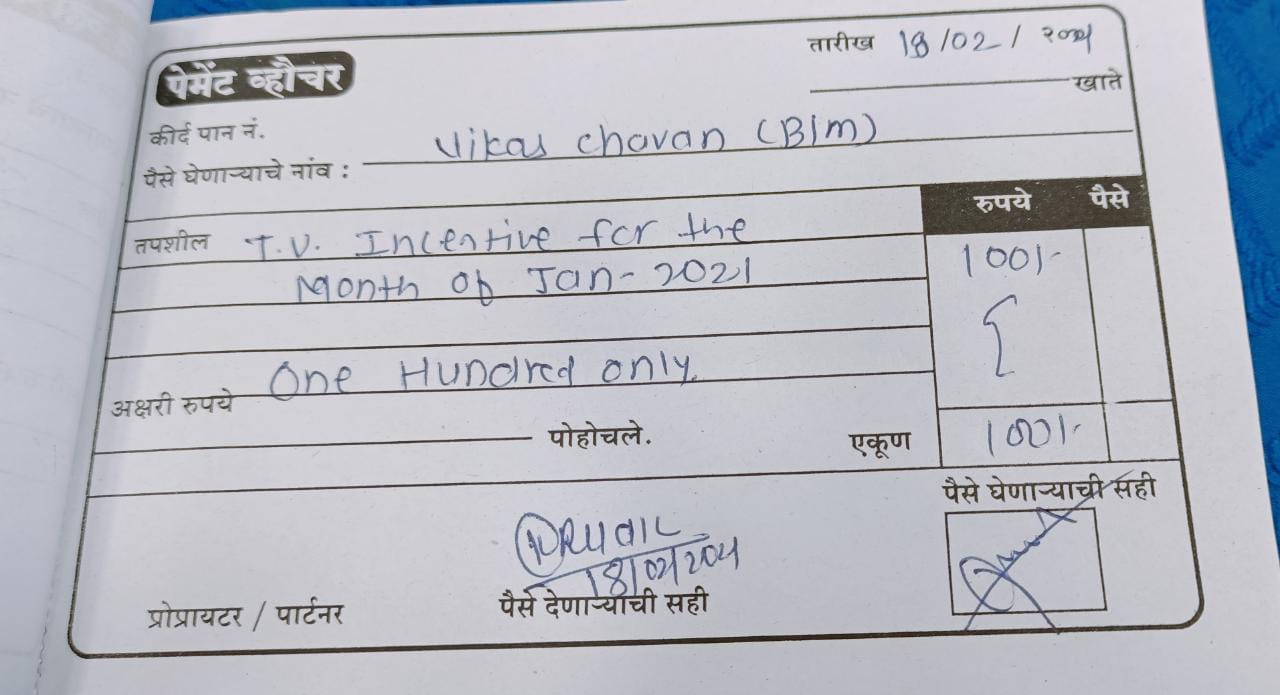 पेमेंट व्हौचर
तारीख 18/02/2021
खाते
कीर्द पान नं.
पैसे घेणाऱ्याचे नांव : Vikas Chavan (B/M)
रुपये पैसे
तपशील T.V. Incentive for the 100/-
Month of Jan-2021
One Hundred only.
अक्षरी रुपये
पोहोचले. एकूण 100/-
पैसे घेणाऱ्याची सही
18/02/2021
प्रोप्रायटर / पार्टनर पैसे देणाऱ्याची सही